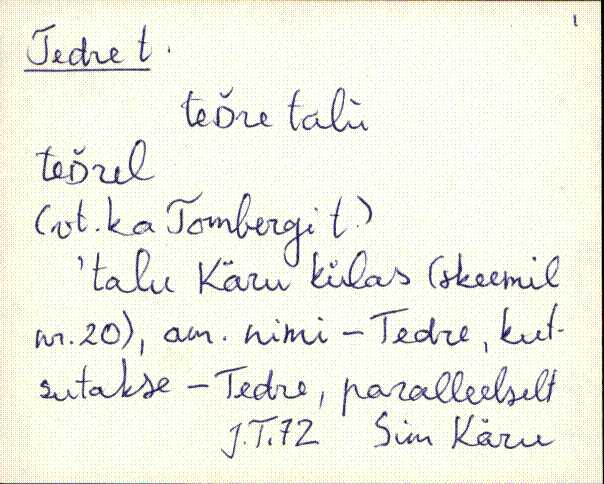 1
Tedre t.
teD̆re talù
teD̆rel
(vt. ka Tombergi t.)
'talu Käru külas (skeemil
nr. 20), am. nimi – Tedre, kut-
sutakse – Tedre, paralleelselt
J.T.72 Sim Käru